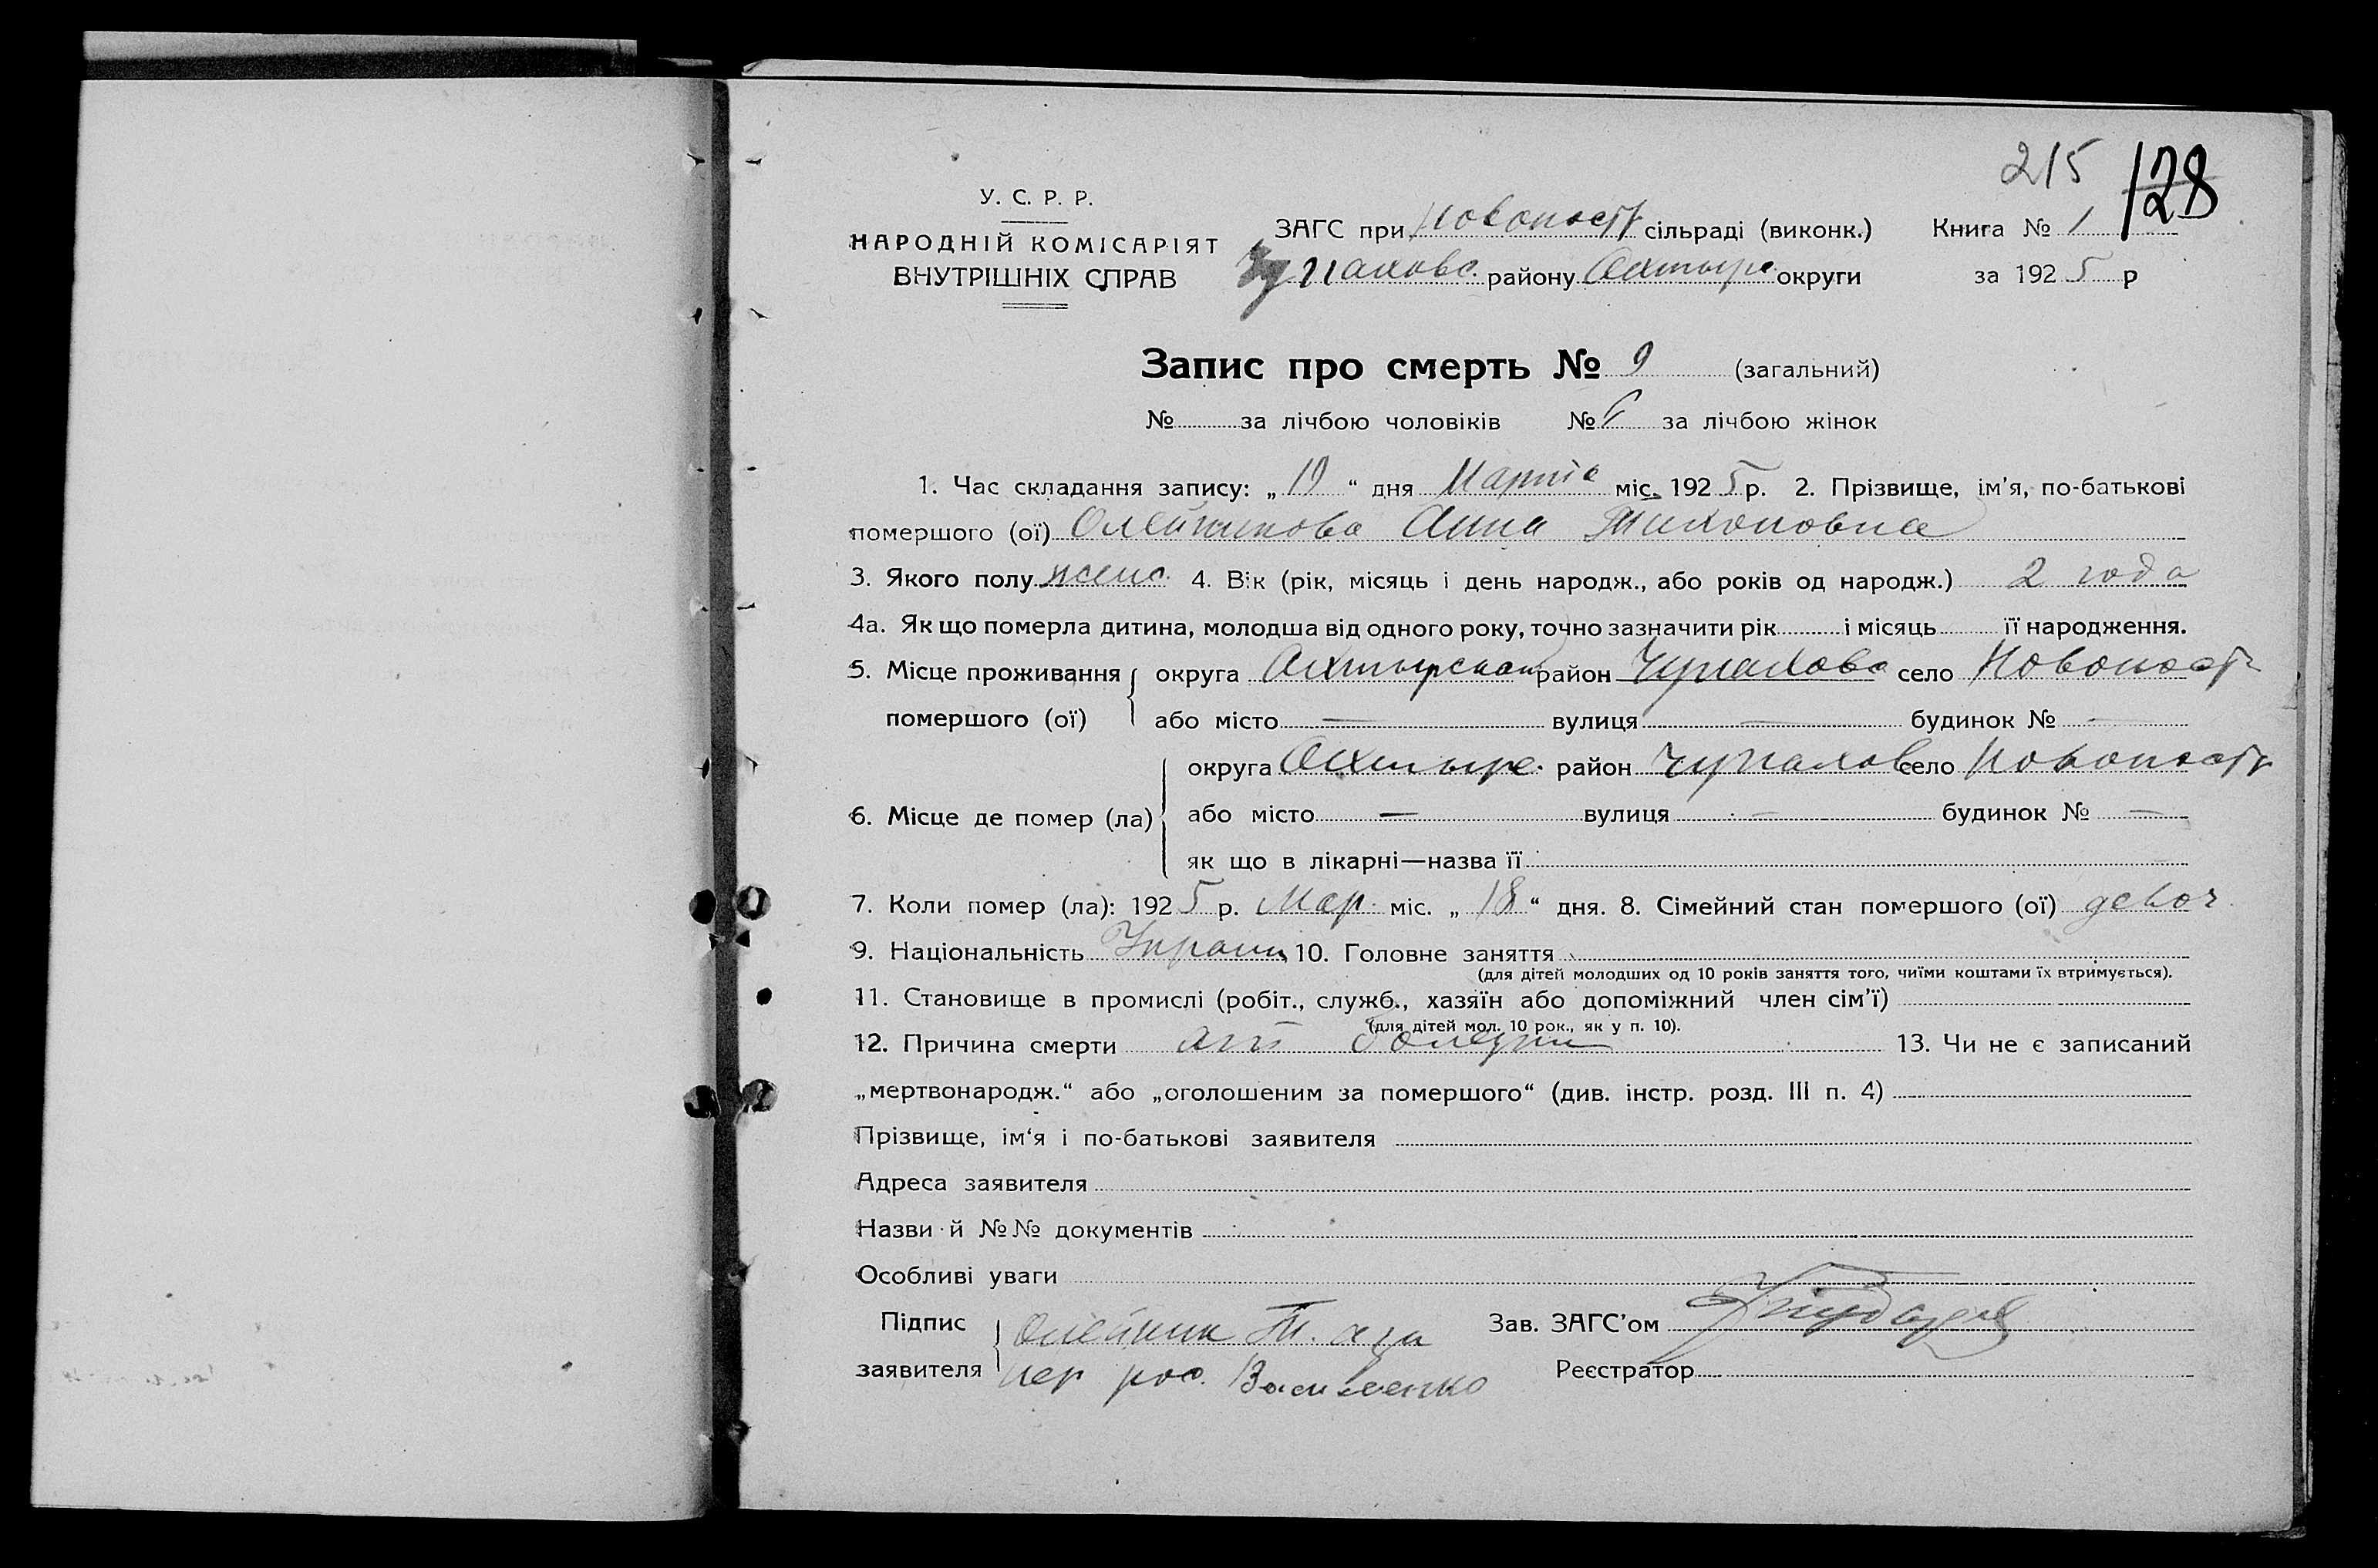 215 128
У. С. Р. Р.
НАРОДНІЙ КОМІСАРІЯТ
ВНУТРІШНІХ СПРАВ
ЗАГС при Новопост сільраді (виконк.) Книга № 1
Чупахов. району Ахтыр. округи за 1925 р
Запис про смерть № 9 (загальний)
№ за лічбою чоловіків № за лічбою жінок
1. Час складання запису: „19“ дня Марта міс. 1925 р. 2. Прізвище, ім'я, по-батькові
помершого (ої) Олейникова Анна Тихоновна
3. Якого полу женс. 4. Вік (рік, місяць і день народж., або років од народж.) 2 года
4а. Як що померла дитина, молодша від одного року, точно зазначити рік і місяць її народження.
5. Місце проживання помершого (ої) округа Ахтырской район Чупахов село Новопост
або місто — вулиця — будинок № —
6. Місце де помер (ла) округа Ахтыр. район Чупахов село Новопост
або місто — вулиця — будинок № —
як що в лікарні—назва її
7. Коли помер (ла): 1925 р. Мар. міс. „18“ дня. 8. Сімейний стан помершого (ої) девоч
9. Національність Украин 10. Головне заняття
(для дітей молодших од 10 років заняття того, чиїми коштами їх втримується).
11. Становище в промислі (робіт., служб., хазяїн або допоміжний член сім'ї)
(для дітей мол. 10 рок., як у п. 10).
12. Причина смерти от болезни 13. Чи не є записаний
„мертвонародж.“ або „оголошеним за помершого“ (див. інстр. розд. III п. 4)
Прізвище, ім'я і по-батькові заявителя
Адреса заявителя
Назви й №№ документів
Особливі уваги
Підпис заявителя Олейник Т. а за Зав. ЗАГС'ом
нег рос. Василенко Реєстратор